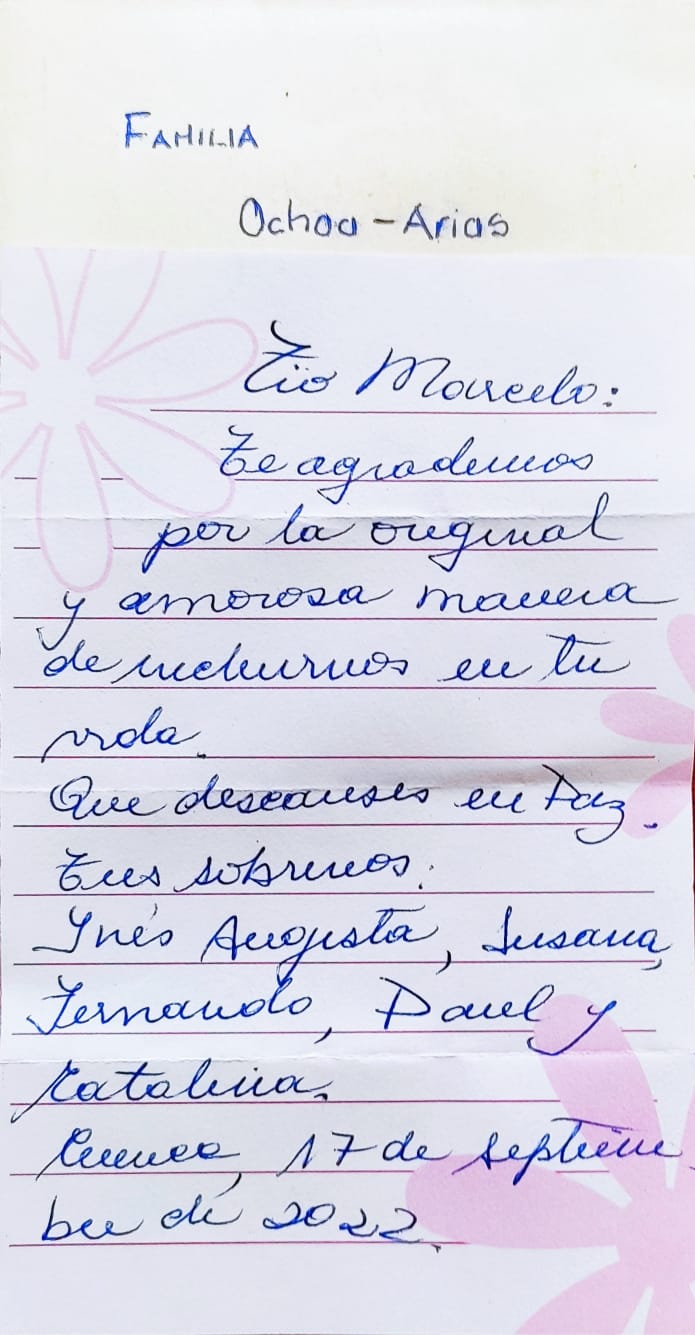 FAMILIA
Ochoa - Arias
Tío Marcelo:
Te agradecemos
por la original
y amorosa manera
de incluirnos en tu
vida.
Que descanses en Paz.
Tus sobrinos:
Inés Augusta, Susana,
Fernando, Paul y
Catalina.
Cuenca, 17 de septiem
bre de 2022.